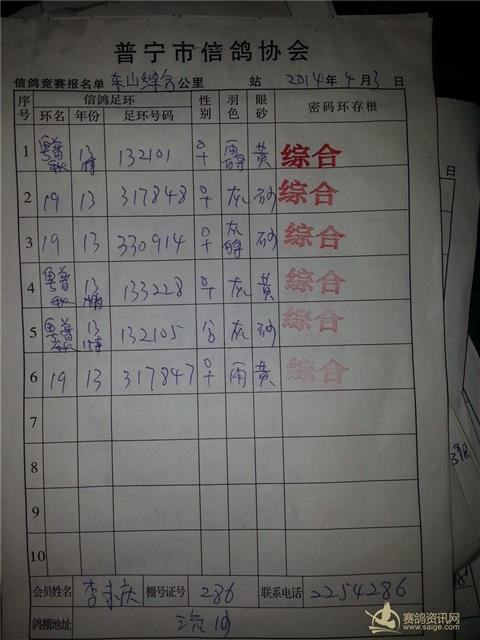 普宁市信鸽协会
信鸽竞赛报名单 东山综合 公里 站 2014年4月3日
序号 信鸽足环 性别 羽色 眼砂 密码环存根
环名 年份 足环号码
1 粤普 13 132101 ♀ 雨白 黄 综合
2 19 13 317848 ♀ 灰 砂 综合
3 19 13 330914 ♀ 灰 砂 综合
4 粤普 13 133228 ♀ 灰 黄 综合
5 粤普 13 132105 灰 砂 综合
6 19 13 317847 ♀ 雨 黄 综合
7
8
9
10
会员姓名 李 庆 棚号证号 286 联系电话 2254286
鸽棚地址
日
398
赛鸽资讯网
www.saige.com